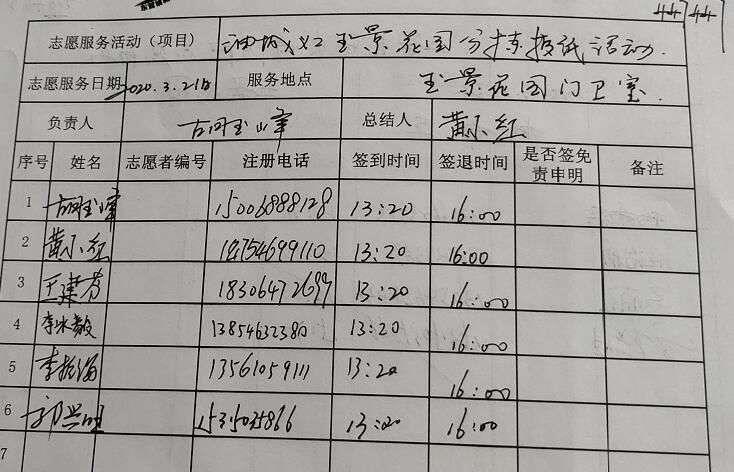 志愿服务活动（项目） 油城义工玉景花园分拣报纸活动.
志愿服务日期 2020.3.21日 服务地点 玉景花园门卫室.
负责人 胡玉峰 总结人 黄小红
序号 姓名 志愿者编号 注册电话 签到时间 签退时间 是否签免责申明 备注
1 胡玉峰 15006888128 13:20 16:00
2 黄小红 13:20 16:00
3 王建芳 18306472699 13:20 16:00
4 13854632380 13:20 16:00
5 13561059111 13:20 16:00
6 郭兴明 15315035866 13:20 16:00
7